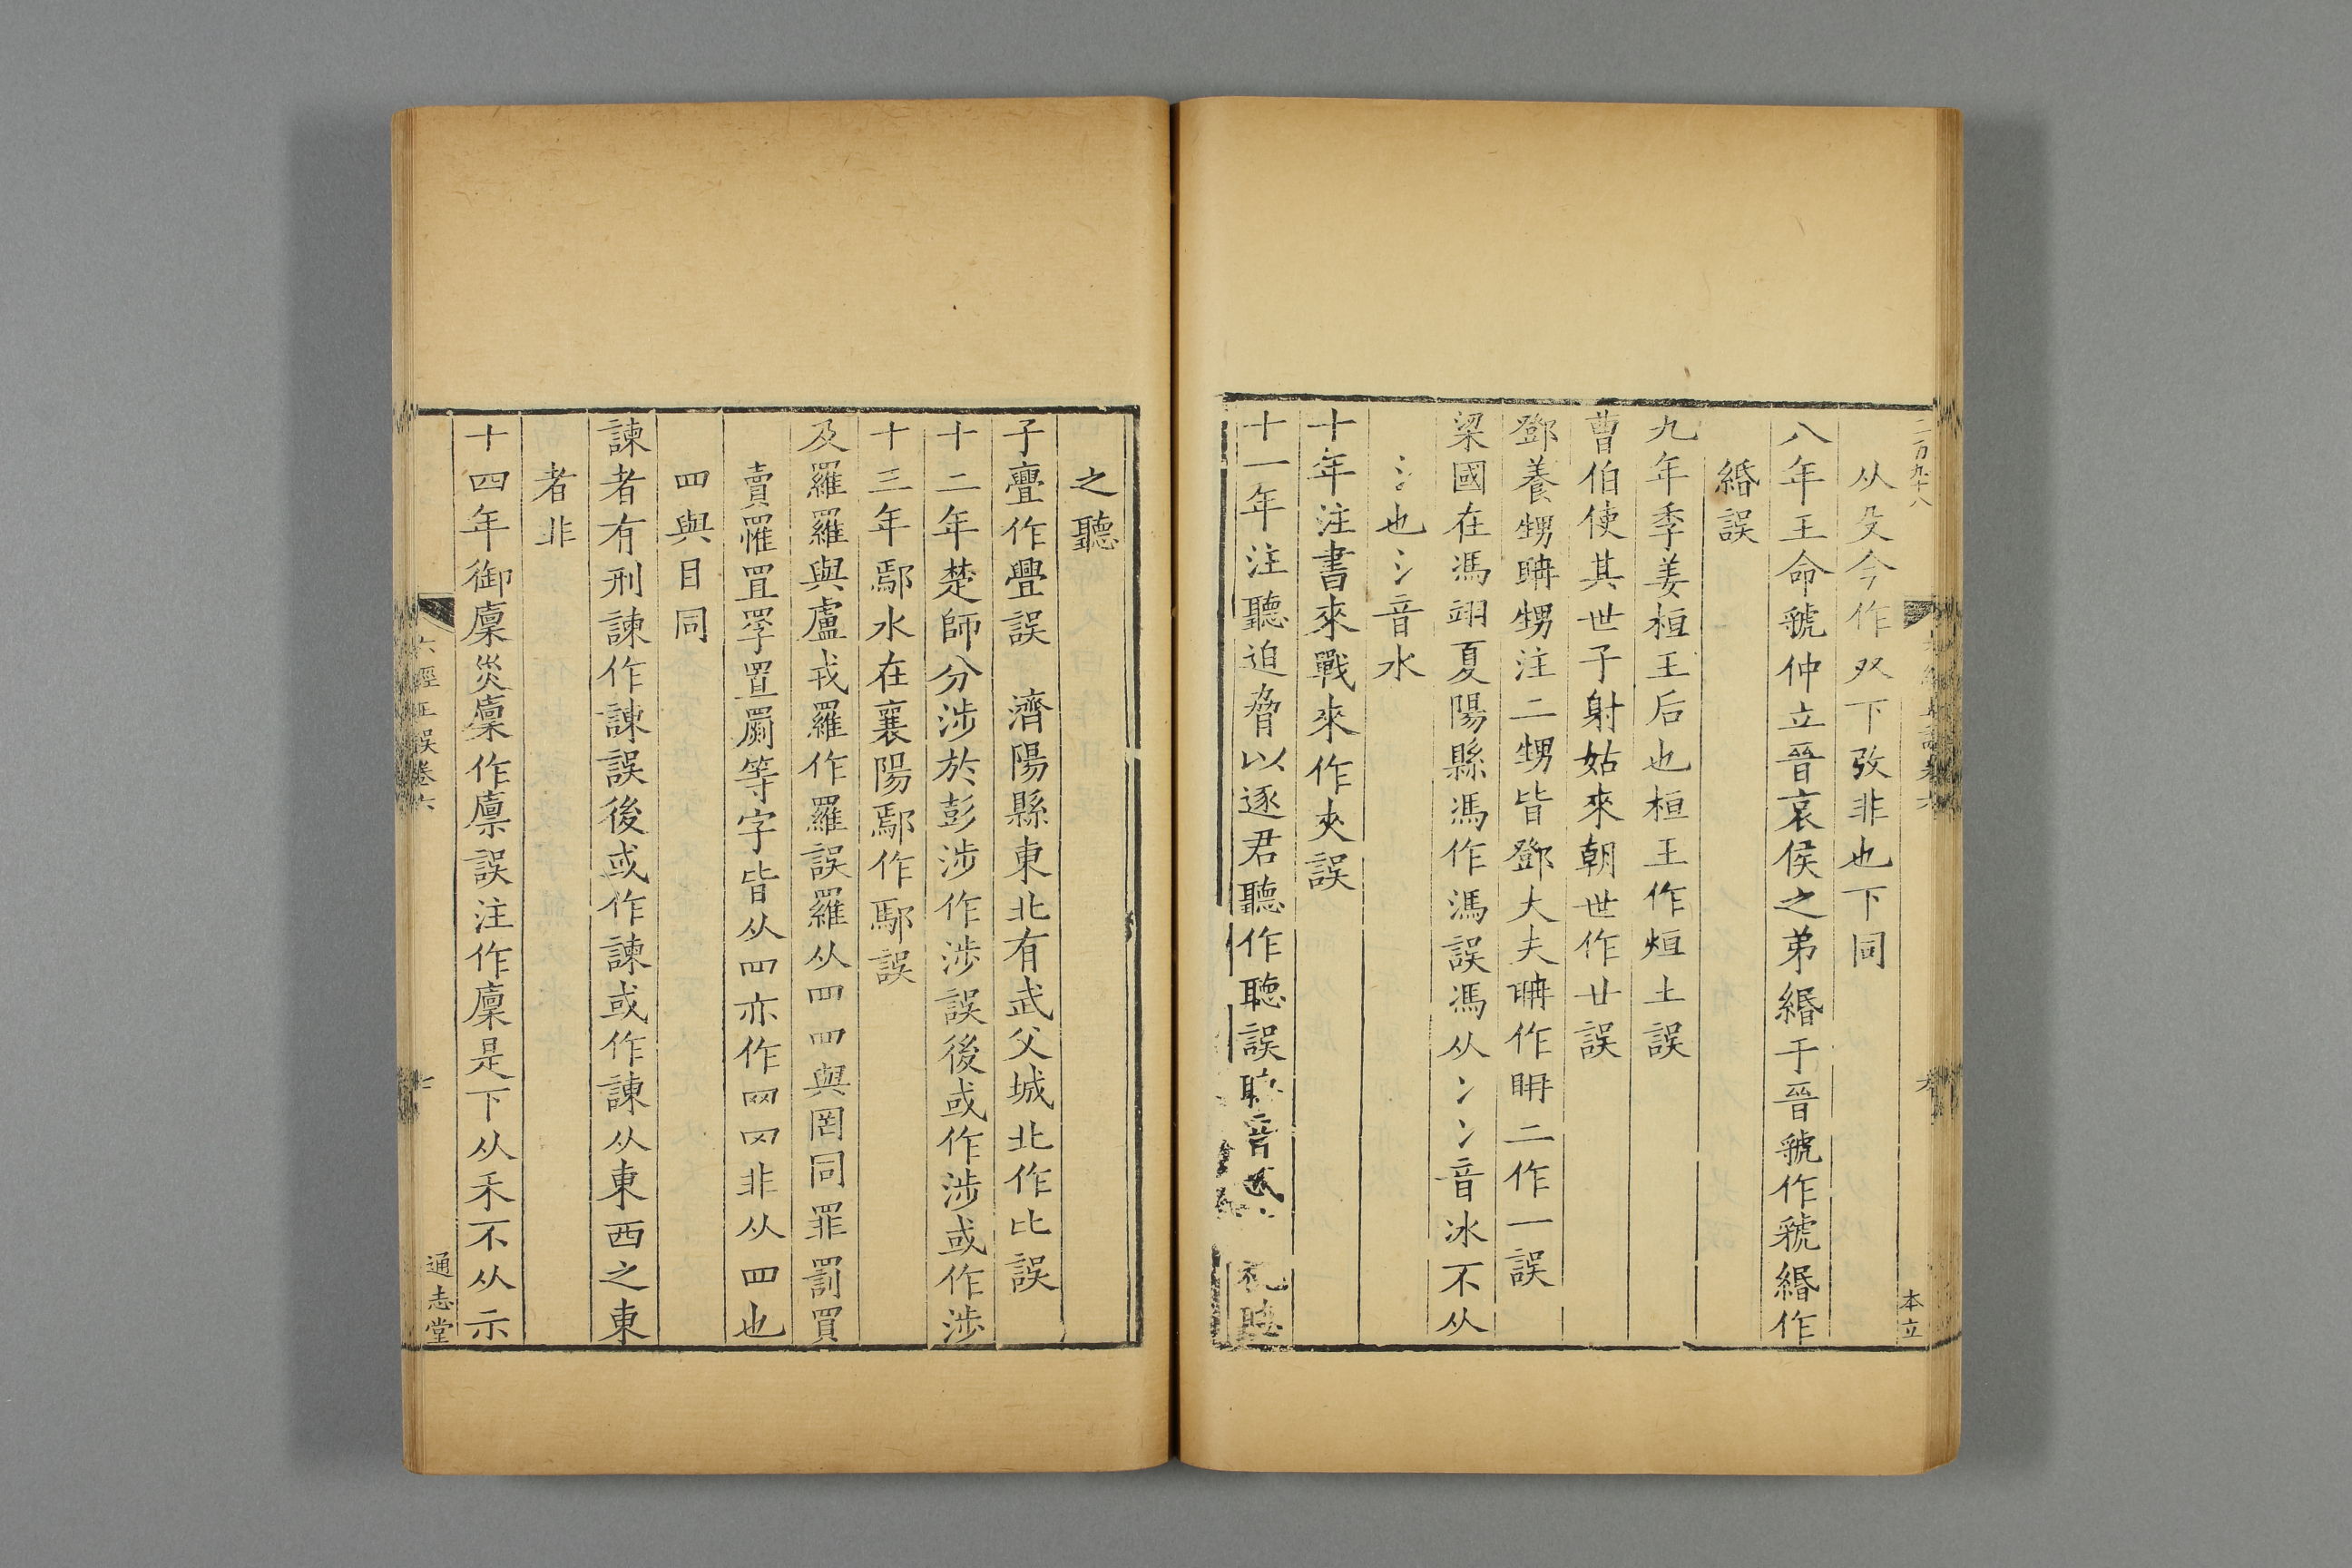 二百九十八
本立
从殳今作双下攷非也下同
八年王命虢仲立晉哀侯之弟緡于晉虢作虢緡作
緍誤
九年季姜桓王后也桓王作烜土誤
曹伯使其世子射姑來朝世作廿誤
鄧養甥聃甥注二甥皆鄧大夫聃作𦕈二作一誤
梁國在馮翊夏陽縣馮作馮誤馮从冫冫音冰不从
氵也氵音水
十年注書來戰來作夾誤
十一年注聽迫脅以逐君聽作聴誤
之聽
子亹作亹誤 濟陽縣東北有武父城北作比誤
十二年楚師分涉於彭涉作涉誤後或作涉或作涉
十三年鄢水在襄陽鄢作鄢誤
及羅羅與盧戎羅作羅誤羅从罒罒與罔同罪罰買
賣罹罝罦置罽等字皆从罒亦作网罓非从四也
四與目同
諫者有刑諫作諌誤後或作諫或作諌从東西之東
者非
十四年御廩災廩作廪誤注作廩是下从禾不从示
六經正誤卷六
七
通志堂